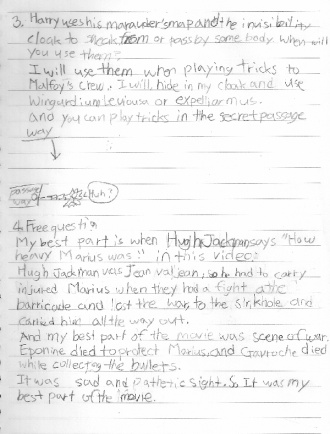 3. Harry uses his marauder's map and the invisibility
cloak to sneak from or pass by some body. when will
you use them?
I will use them when playing tricks to
Malfoy's crew. I will hide in my cloak and use
Wingurdium leviousa or expeliarmus.
and you can play tricks in the secret passage
way
passage
way
Huh?
4. Free questi
My best part is when Hugh Jackman says "How
heavy Marius was!" in this video.
Hugh Jackman was Jean valjean, so he had to carry
injured Marius when they had a fight at the
barricade and lost the war, to the sinkhole and
carried him all the way out.
And my best part of the movie was scene of war.
Eponine died to protect Marius, and Gavroche died
while collecting the bullets.
It was sad and pathetic sight. So It was my
best part of the movie.